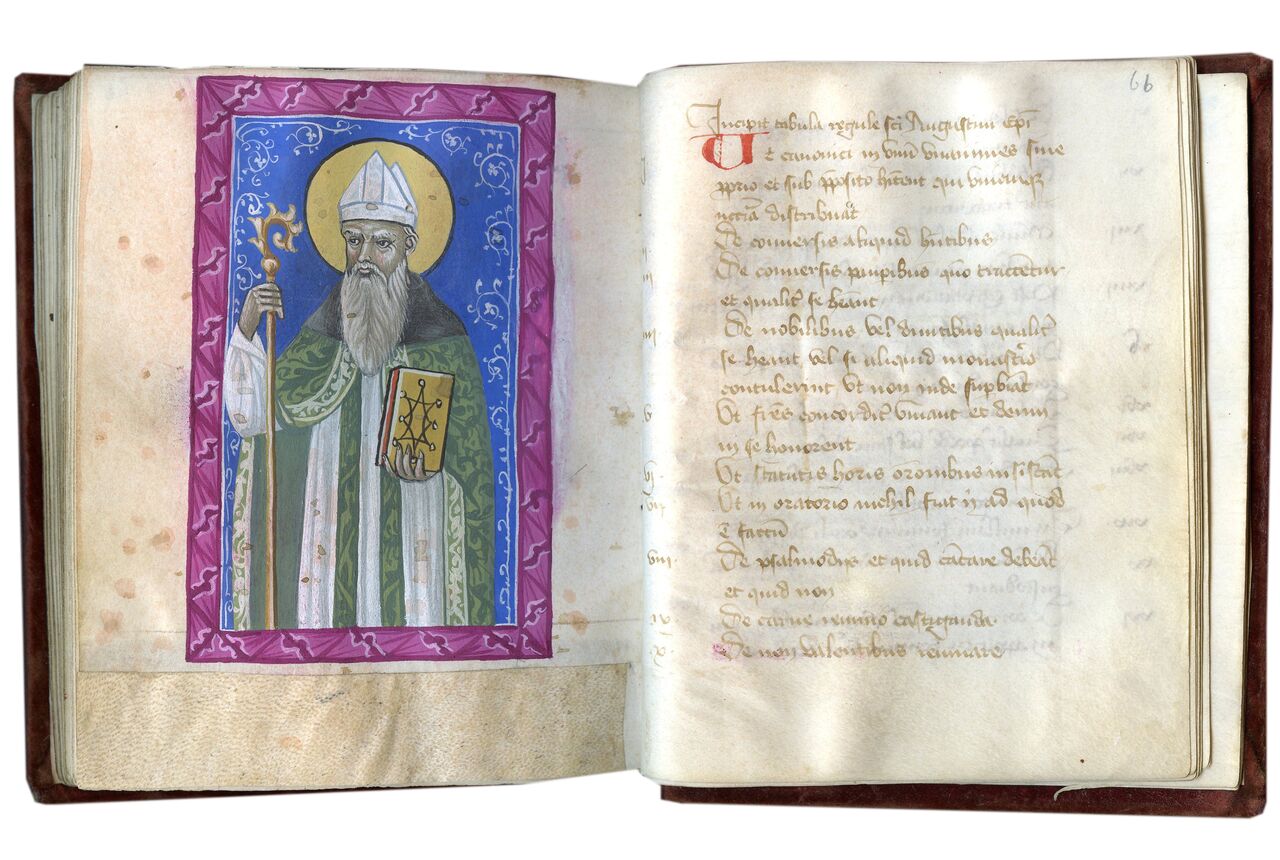 66
Incipit tabula regule sci Augustini Epi
Ut canonici in unu unanimes sine
pprio et sub pposito hitent qui unicuiqz
distribuat
De conuersis aliquid hntibus
De conuersis paupibus quo tractentur
et qualit se heant
De nobilibus vel diuitibus qualit
se heant vel si aliquid monastio
contulerint Ut non inde supbiat
v Ut fres concordit viuant et deum
in se honorent
vj Ut statutis horis oronibus insistat
vii Ut in oratorio nichil fiat n ad quod
e factu
viii De psalmodijs et quid catare debeat
et quid non
ix De carne ieiunio castiganda
x De non valentibus ieiunare